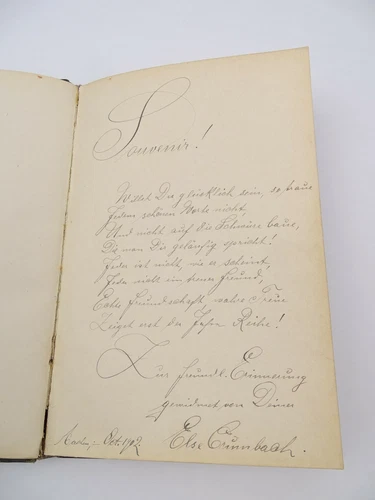 Souvenir!
Willst Du glücklich sein, so baue
Jedem schönen Worte nicht,
Und nicht auf die Schwüre baue,
Die man Dir geläufig spricht!
Jeder ist nicht, wie es scheint,
Jeder nicht ein treuer Freund,
Echte Freundschaft, wahre Treue
Zeigt erst der Jahre Reihe!
Zur freundl. Erinnerung
gewidmet von Deiner
Else Crumbach.
Oct. 1902